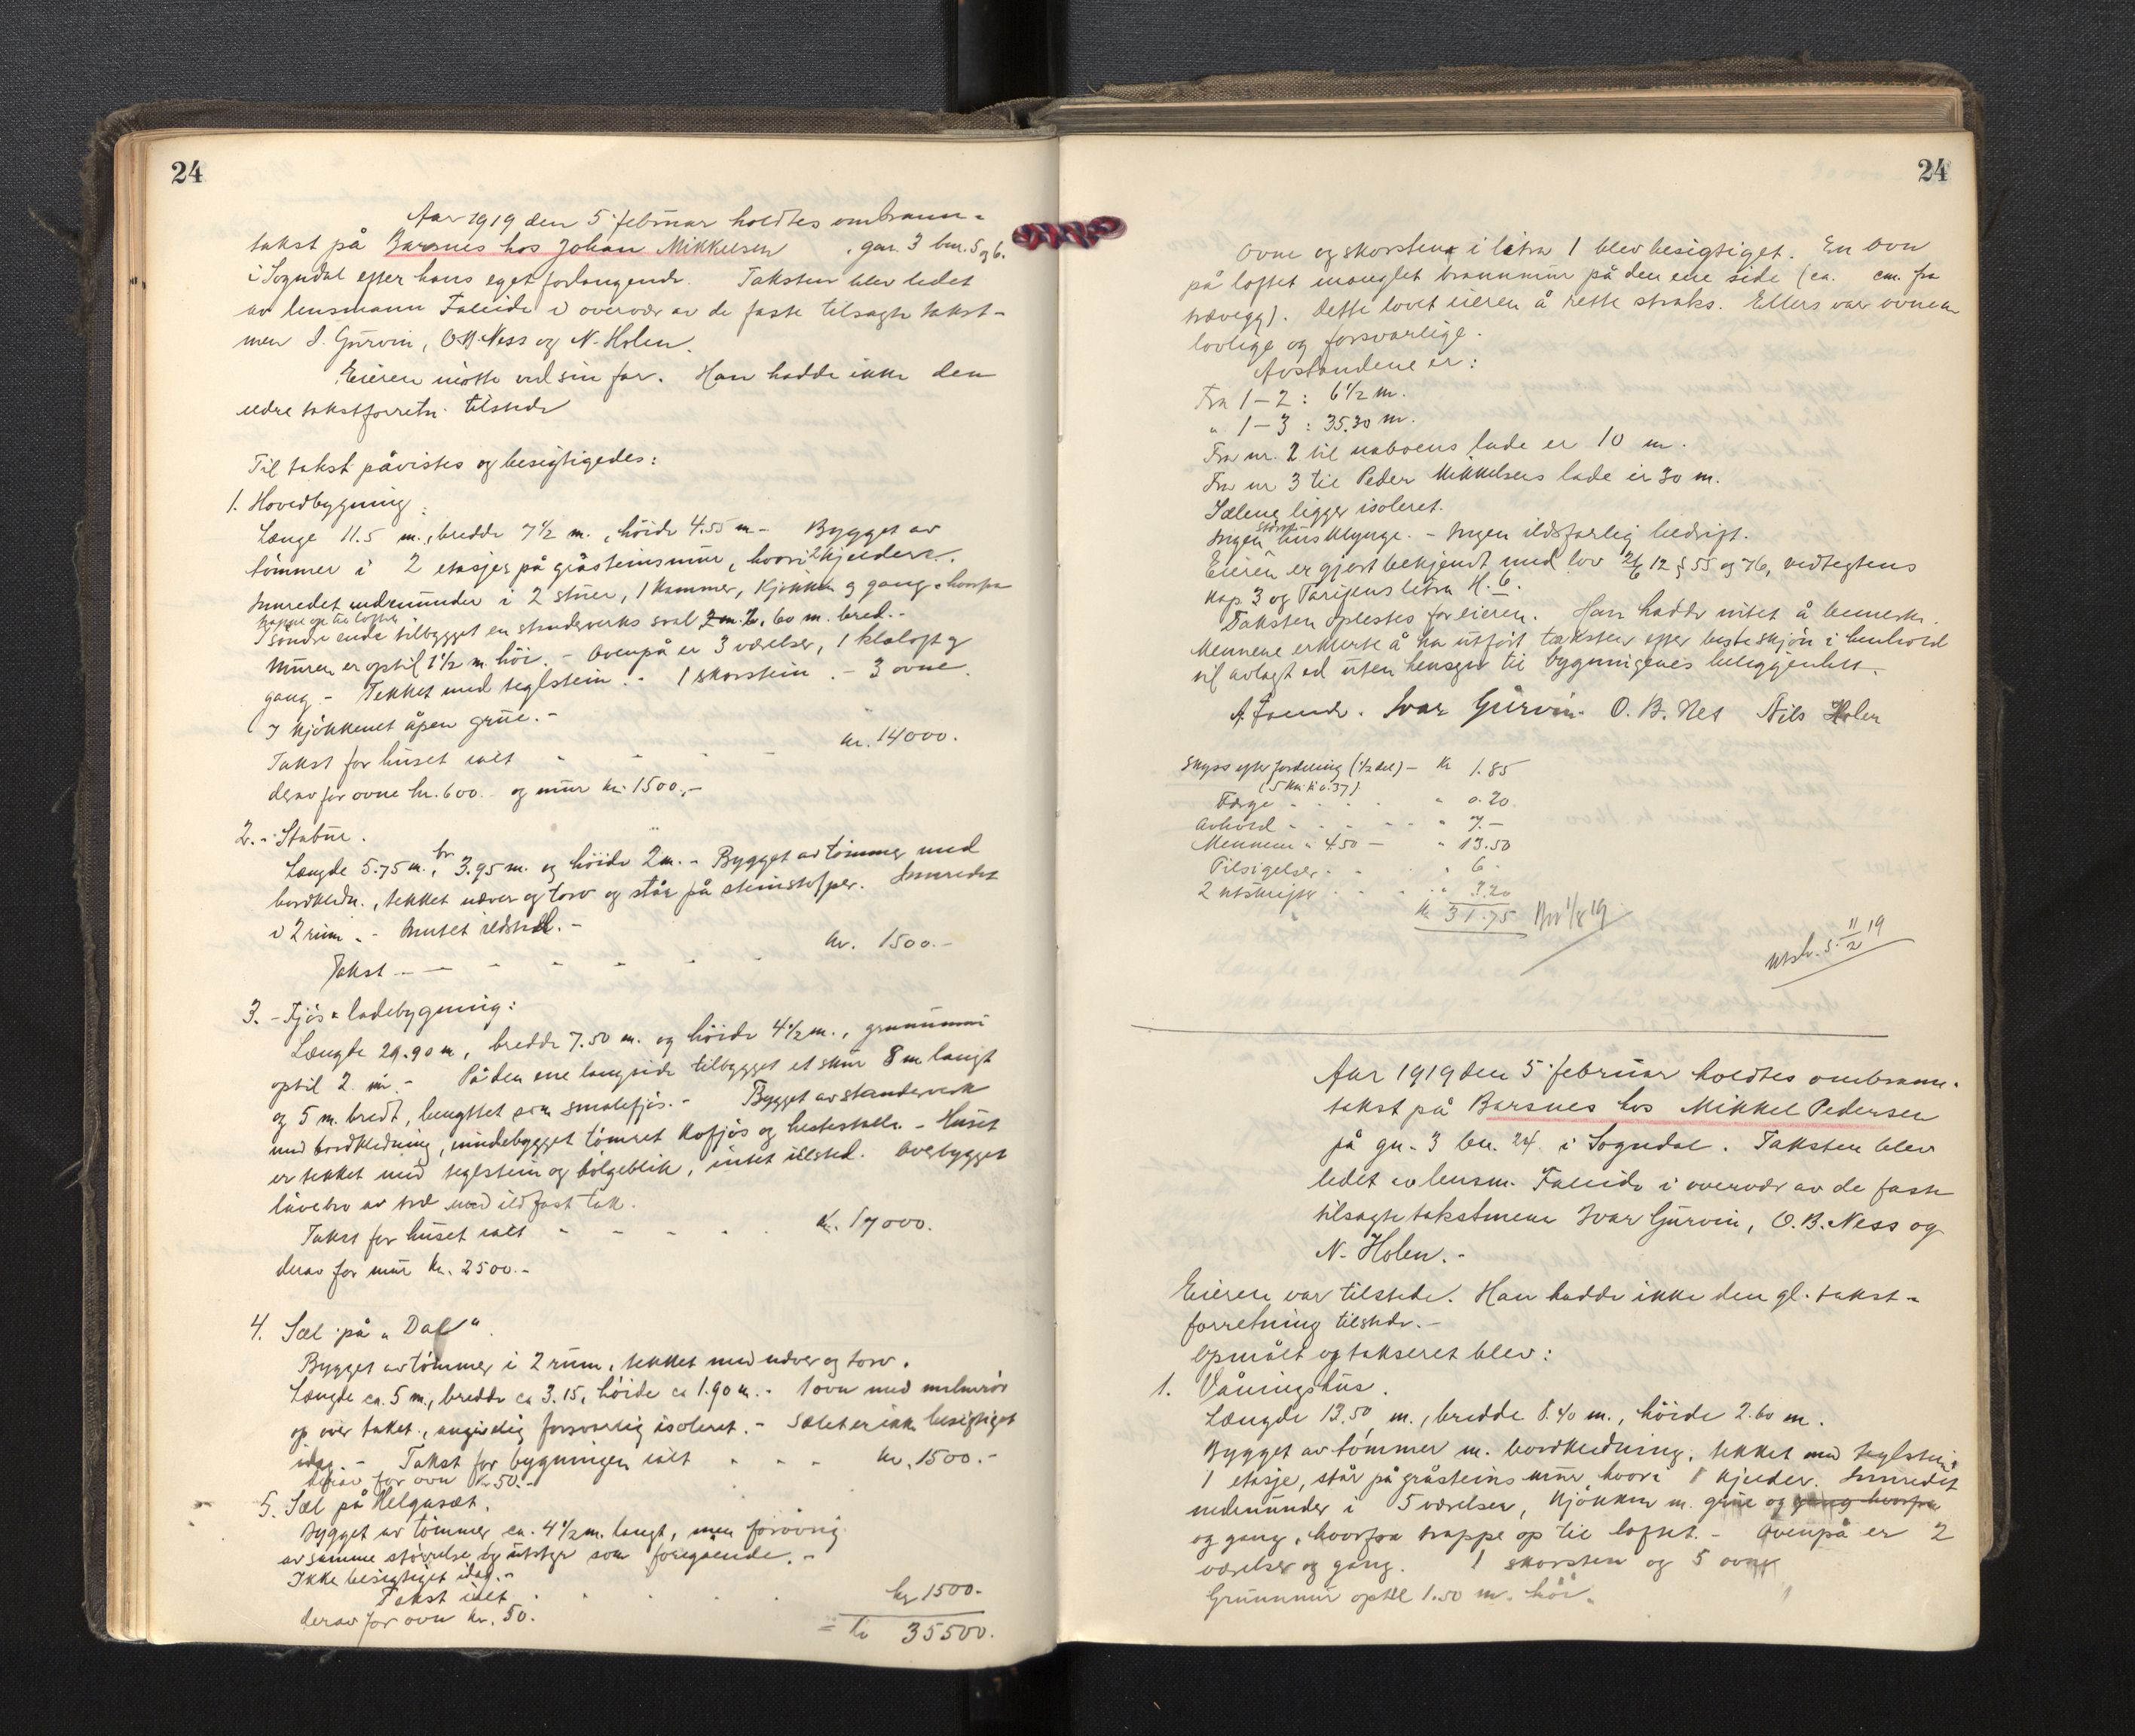 24
Aar 1919 den 5 februar holdtes ombrann-
takst på Barsnes hos Johan Mikkelsen gnr. 3 bnr. 5 og 6.
i Sogndal efter hans eget forlangende. Taksten blev ledet
av lensmann Faleide i overvær av de faste tilsagte takst-
men I. Gurvin, O.B. Ness og N. Holen.
Eieren møtte ved sin far. Han hadde ikke den
eldre takstforretn. tilstede
Til takst påvistes og besigtigedes:
1. Hovedbygning:
Længe 11.5 m., bredde 7 1/2 m., høide 4.55 m - Bygget av
tømmer i 2 etasjer på gråsteinsmur, hvori 2 kjeldere.
Innredet nedenunder i 2 stuer, 1 kammer, kjøkken og gang, hvorfra
trappe op til loftet
I søndre ende tilbygget en standverks sval 2,60 m. bred.-
Muren er optil 1 1/2 m. høi. - Ovenpå er 3 værelser, 1 klæloft og
gang - Tekket med teglstein. - 1 skorstein. - 3 ovne.
I kjøkkenet åpen grue. -
Takst for huset ialt kr. 14000.
derav for ovne kr. 600.- og mur kr. 1500.-
2. - Stabur.
Længde 5.75 m., br. 3.95 m. og høide 2 m. - Bygget av tømmer med
bordkledn., tekket næver og torv og står på steinstolper. Innredet
i 2 rum. - Intet ildsted. -
Takst - - - kr. 1500.-
3. - Fjøs & ladebygning:
Længde 29.90 m, bredde 7.50 m. og høide 4 1/2 m., grunnmur
optil 2 m. - På den ene langside tilbygget et skur 8 m langt
og 5 m. bredt, benyttet som smalefjøs. - Bygget av standerverk
med bordkledning, innebygget tømret kofjøs og hestestall. - Huset
er tekket med teglstein og bølgeblik, intet ildsted. Overbygget
låvebro av træ med ildfast tak.
Takst for huset ialt kr. 17000.
derav for mur kr. 2500.-
4. Sæl på "Dal".
Bygget av tømmer i 2 rum, tekket med næver og torv.
Længde ca. 5 m., bredde ca 3.15, høide ca 1.90 m. - 1 ovn med malmrør
op over taket, angivelig forsvarlig isoleret. - Sælet er ikke besigtiget
idag. - Takst for bygningen ialt kr. 1500.-
derav for ovn kr. 50.-
5. Sæl på Helgasæt.
Bygget av tømmer ca. 4 1/2 m. langt, men forøvrig
av samme størrelse og utstyr som foregående. -
Ikke besigtiget idag. -
Takst ialt kr 1500.-
derav for ovn kr. 50.
= kr 35500.
24
Ovne og skorstene i litra 1 blev besigtiget. En ovn
på loftet manglet brannmur på den ene side (ca. cm. fra
trævegg). Dette lovet eieren å rette straks. Ellers var ovnene
lovlige og forsvarlige.
Avstandene er:
Fra 1 - 2 : 6 1/2 m.
" 1 - 3 : 35.30 m.
Fra nr. 2 til naboens lade er 10 m.
Fra nr 3 til Peder Mikkelsens lade er 30 m.
Sælene ligger isoleret.
Ingen større husklynge. - Ingen ildsfarlig bedrift.
Eieren er gjort bekjendt med lov 21/6 12 § 55 og 76, vedtegtens
kap. 3 og Tarifens litra H. 6.
Taksten oplestes for eieren. Han hadde intet å bemerke.
Mennene erklærte å ha utført taksten efter beste skjøn i henhold
til avlagt ed uten hensyn til bygningenes beliggenhet.
A. Faleide. Ivar Gurvin. O. B. Nes Nils Holen
Skyss efter fordeling (1/2 del) - kr 1.85
(5 km. à 0.37)
Færge " 0.20
Avhold " 7.-
Mennene à 4.50 - " 13.50
Tilsigelser " 6
2 utskrifter " 3.20
kr 31.75
utskr. s. 11/2 19
Aar 1919 den 5 februar holdtes ombrann-
takst på Barsnes hos Mikkel Pedersen
på gn. 3 bn. 24 i Sogndal. Taksten blev
ledet av lensm. Faleide i overvær av de faste
tilsagte takstmenn Ivar Gurvin, O.B. Ness og
N. Holen. -
Eieren var tilstede. Han hadde ikke den gl. takst-
forretning tilstede. -
Opmålt og takseret blev:
1. Våningshus.
Længde 13.50 m., bredde 8.40 m., høide 2.60 m.
Bygget av tømmer m. bordkledning, tekket med teglstein,
1 etasje, står på gråsteinsmur hvori 1 kjelder. Innredet
nedenunder i 5 værelser, kjøkken m. grue og gang hvorfra
og gang, hvorfra trappe op til loftet. - Ovenpå er 2
værelser og gang. 1 skorsten og 5 ovne
Grunnmur optil 1.50 m. høi.